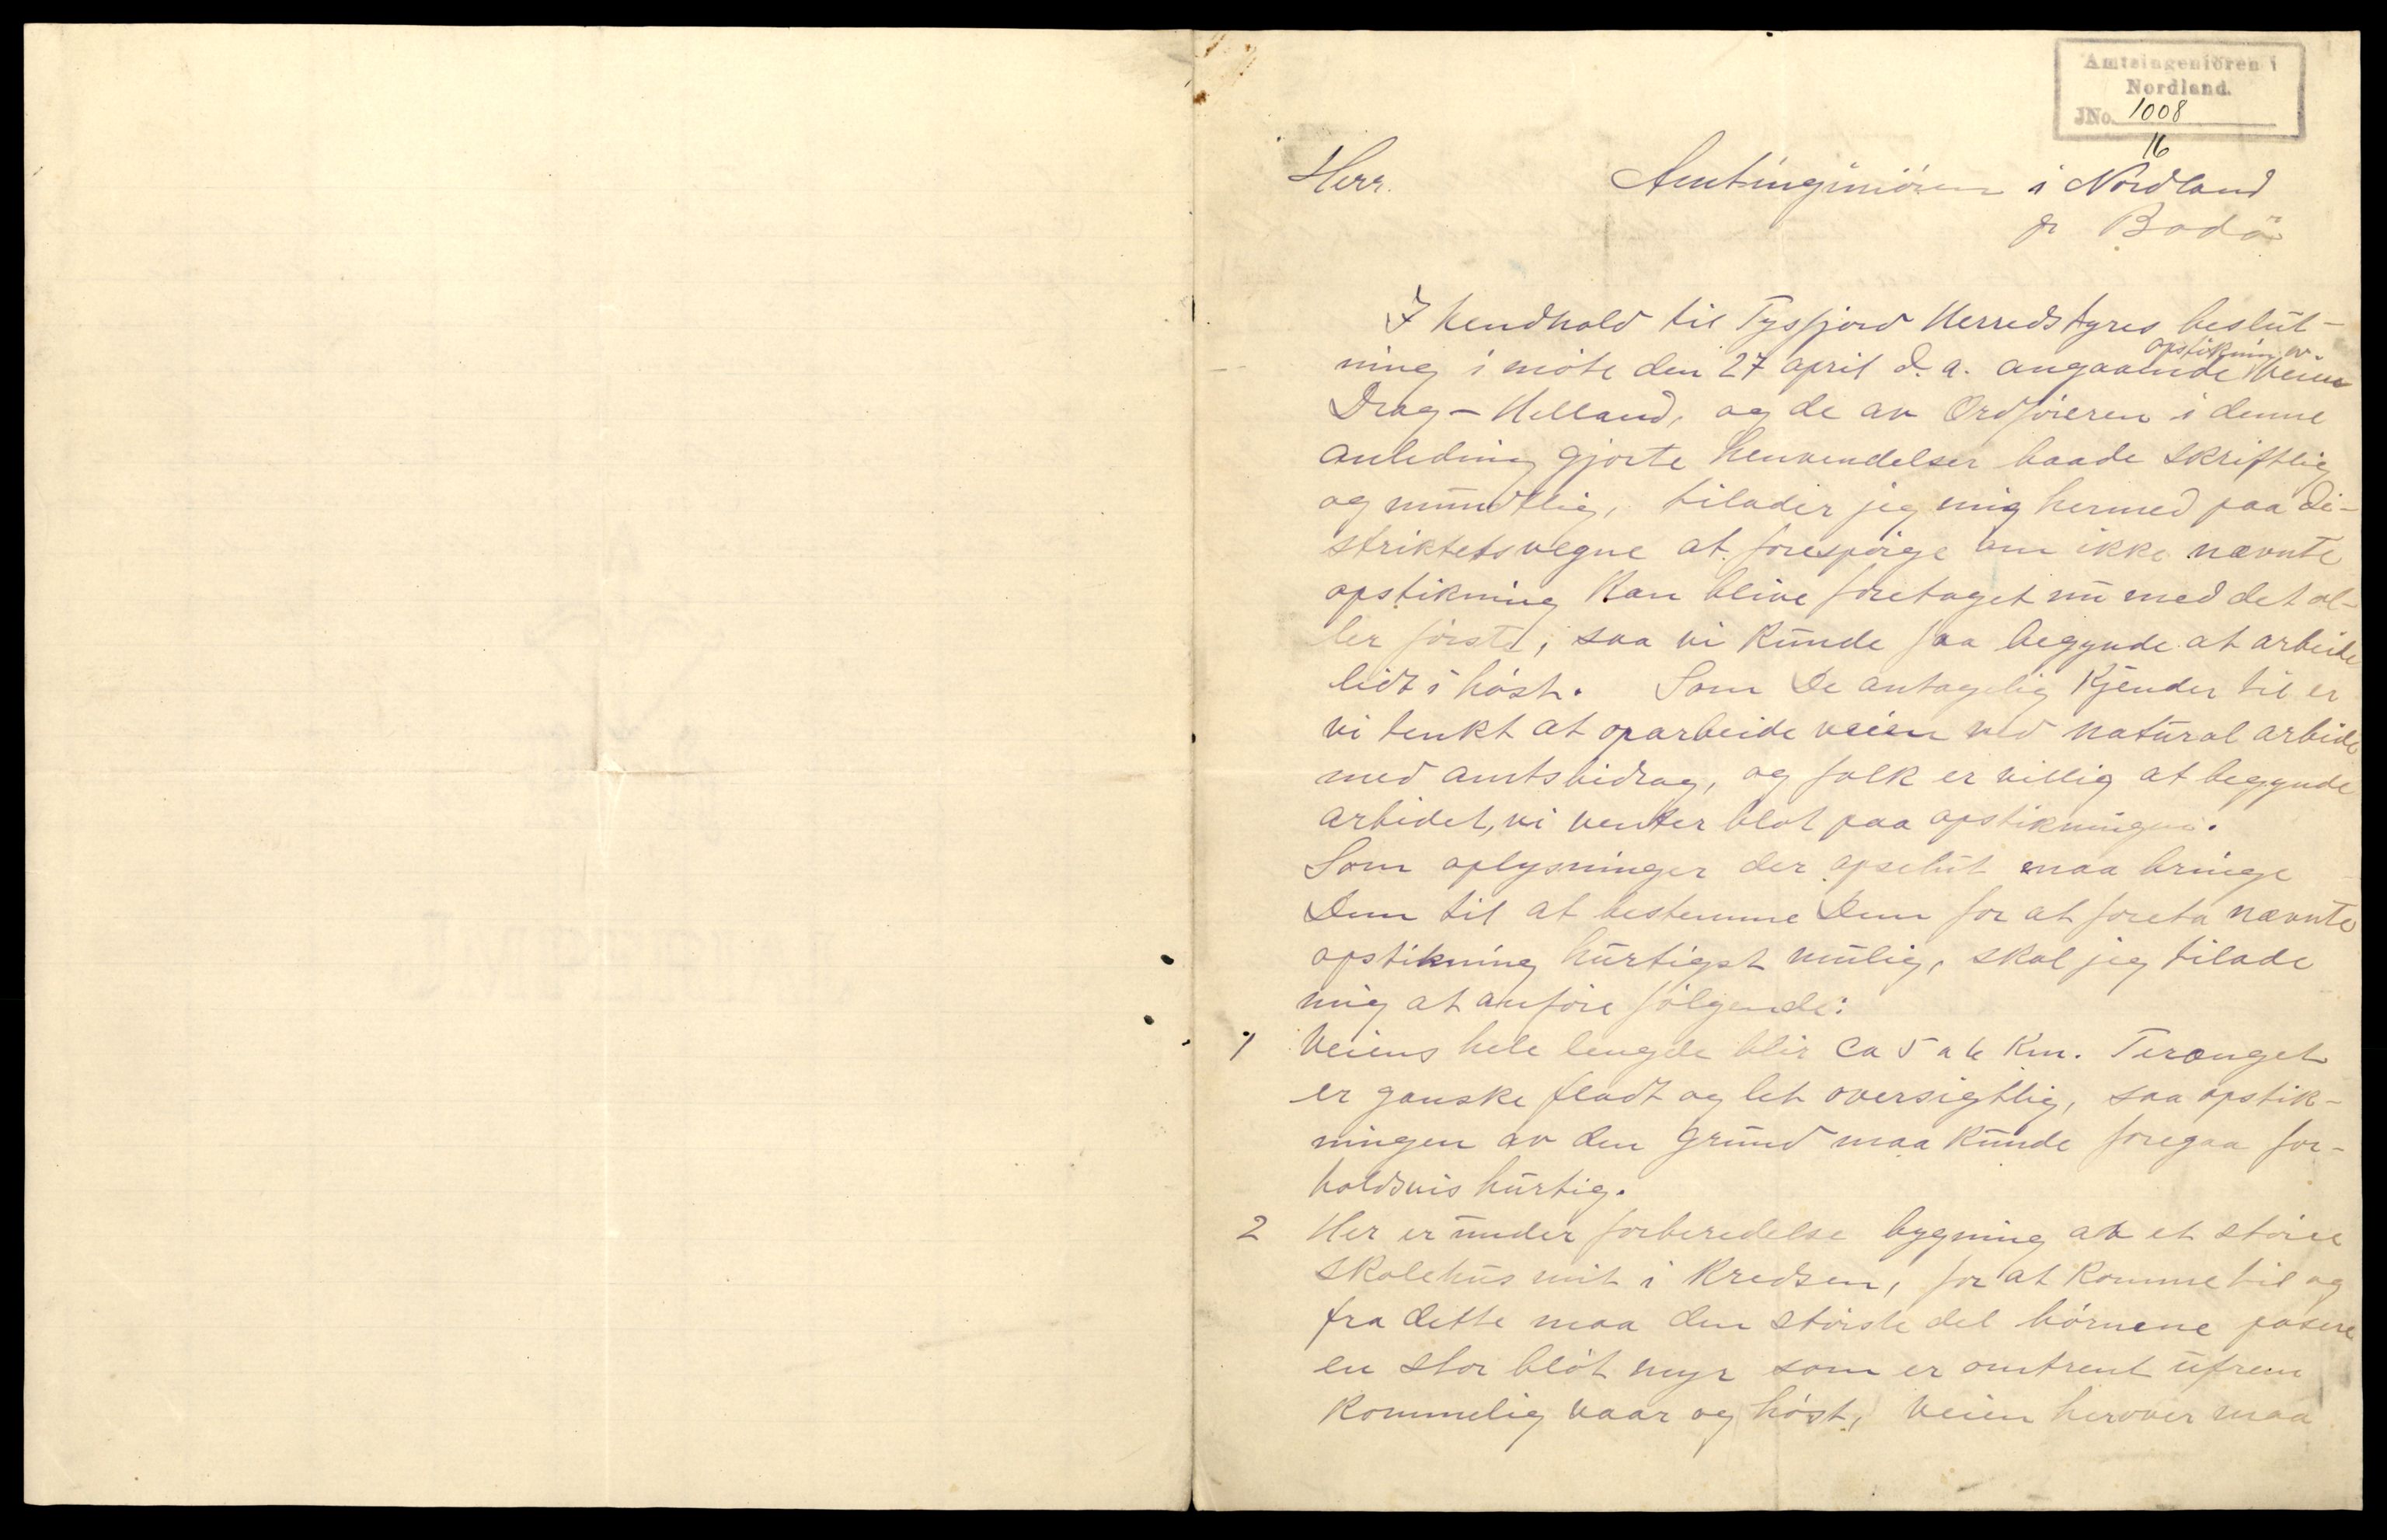 Amtsingeniören i
Nordland.
JNo. 1008
16
Herr. Amtingeniören i Nordland
pr Bodö
I hendhold til Tysfjord Herredstyres beslut-
ning i möte den 27 april d. a. angaaende opstikning av veien
Drag - Helland, og de av Ordföreren i denne
anledning gjorte henvendelser baade skriftlig
og mundtlig, tilader jeg mig hermed paa di-
striktets vegne at forespörge om ikke nævnte
opstikning kan blive foretaget nu med det al-
ler förste, saa vi kunde faa begynde at arbeide
lidt i höst. Som De antagelig kjender til er
vi tenkt at oparbeide veien ved natural arbide
med amtsbidrag, og folk er villig at begynde
arbidet, vi venter blot paa opstikningen.
Som oplysninger der apselut maa bringe
Dem til at bestemme Dem for at foreta nævnte
opstikning hurtigst mulig, skal jeg tilade
mig at anföre fölgende:
1 Veiens hele lengde blir ca 5 a 6 Km. Terænget
er ganske fladt og let oversigtlig, saa opstik-
ningen av den grund maa kunde foregaa for-
holdsvis hurtig.
2 Her er under forberedelse bygning av et störe
skolehus mit i kredsen, for at komme til og
fra dette maa den störste del börnene pasere
en stor blöt myr som er omtrent ufrem
kommelig vaar og höst, veien herover maa